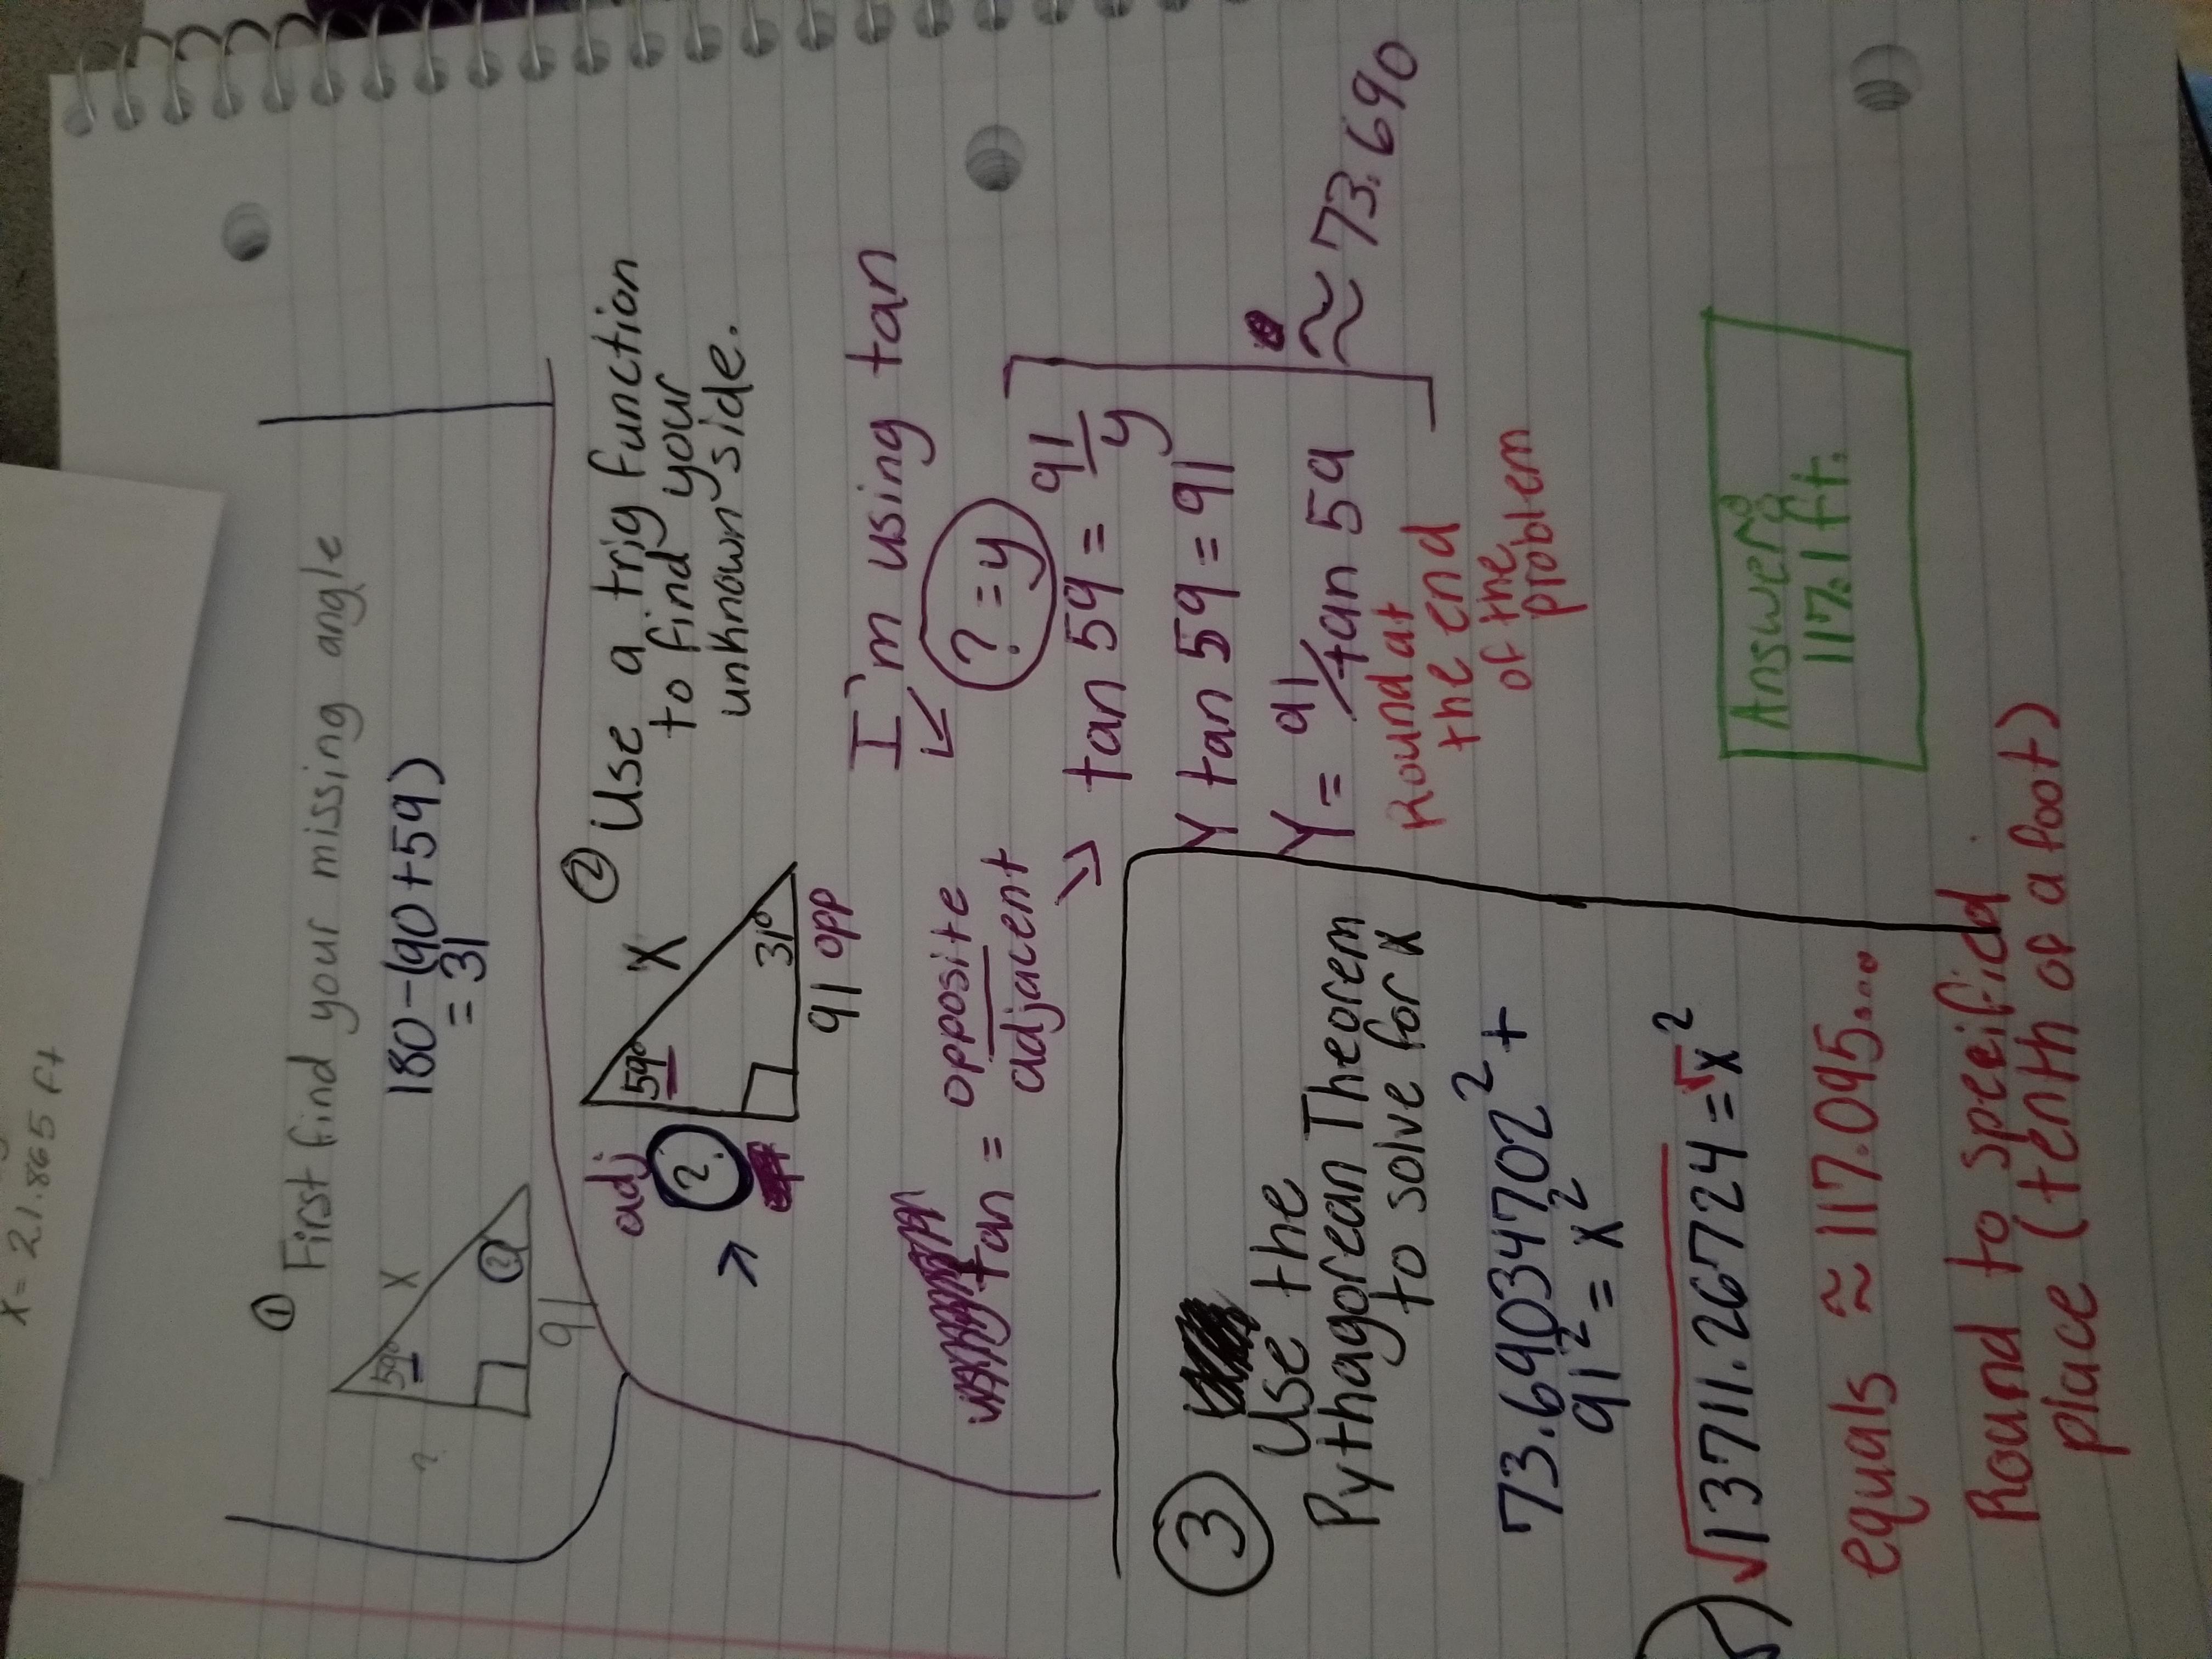 x = 21.865 ft
① First find your missing angle
59°
x
?
?
91
180-(90+59)
= 31
② Use a trig function
to find your
unknown side.
adj
?
59°
X
31°
91 opp
I'm using tan
? = y
tan = opposite
adjacent
tan 59 = 91
y
Y tan 59 = 91
Y = 91/tan 59
≈ 73.690
Round at
the end
of the
problem
③
Use the
Pythagorean Theorem
to solve for x
73.69034702² +
91² = x²
√13711.26724 = √x²
equals ≈ 117.095...
Round to speified
place (tenth of a foot)
Answer:
117.1 ft.